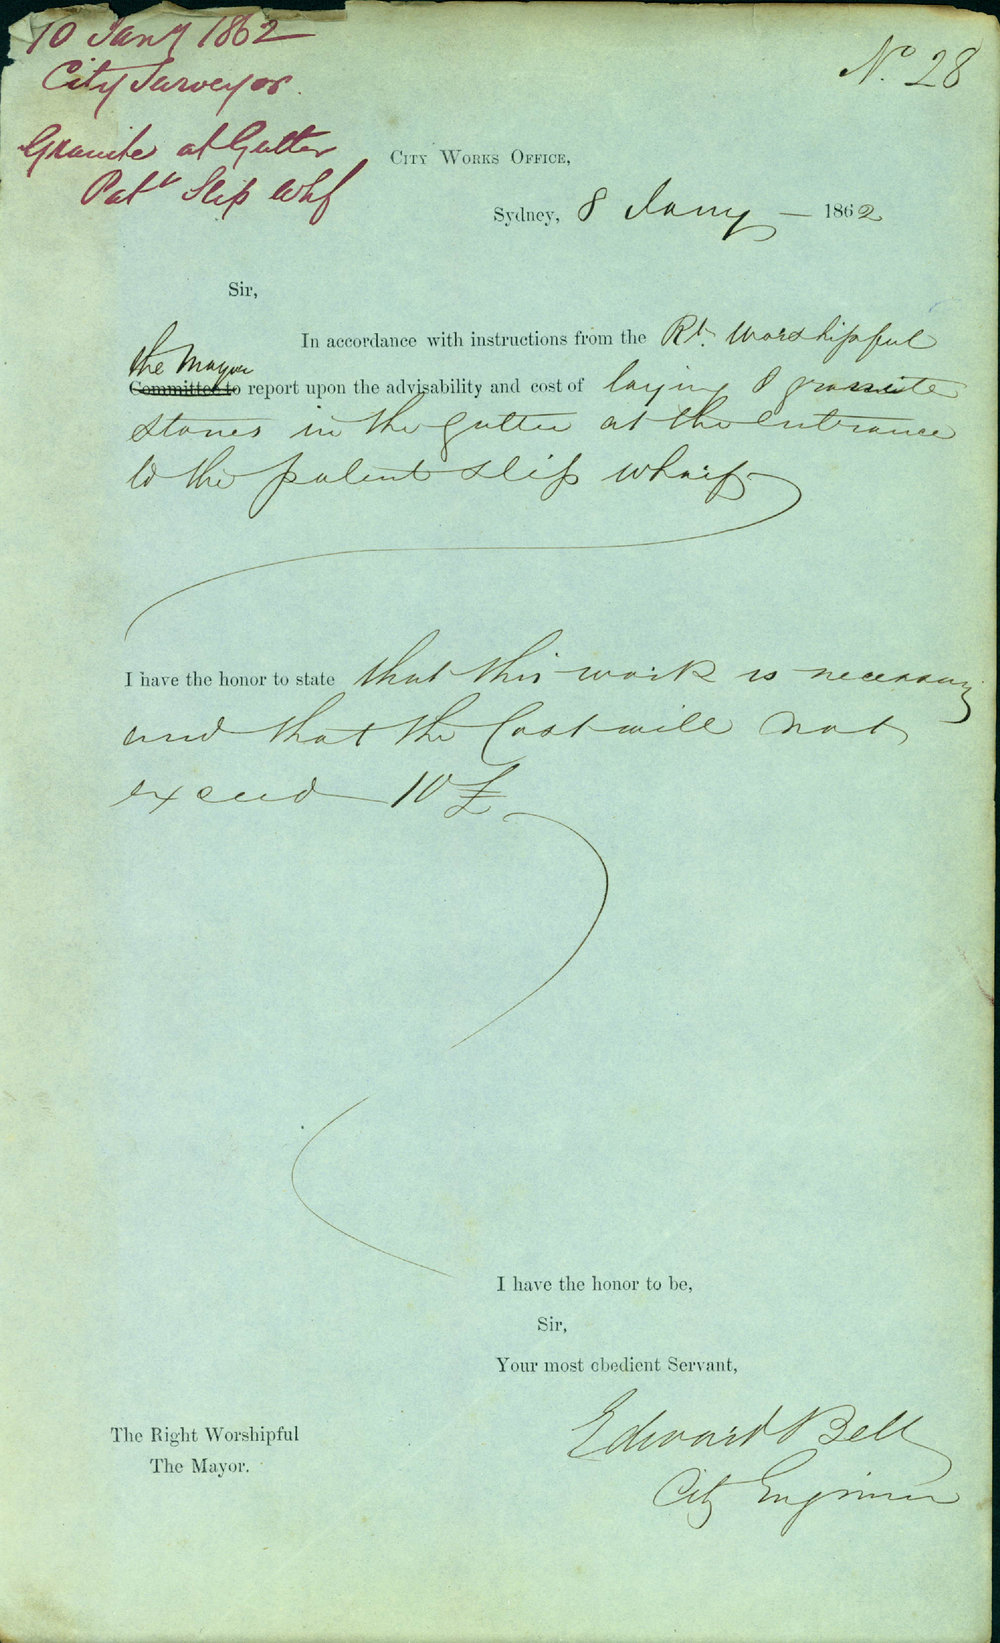 10 Jany 1862
City Surveyor.
Granite at Gutter
Patt Slip Whf
No. 28
City Works Office,
Sydney, 8 Jany — 1862
Sir,
In accordance with instructions from the Rt. Worshipful
the Mayor
Committee to report upon the advisability and cost of laying 8 granite
stones in the gutter at the entrance
to the patent slip wharf
I have the honor to state that this work is necessary
and that the Cost will not
exceed 10£
I have the honor to be,
Sir,
Your most obedient Servant,
Edward Bell
City Engineer
The Right Worshipful
The Mayor.